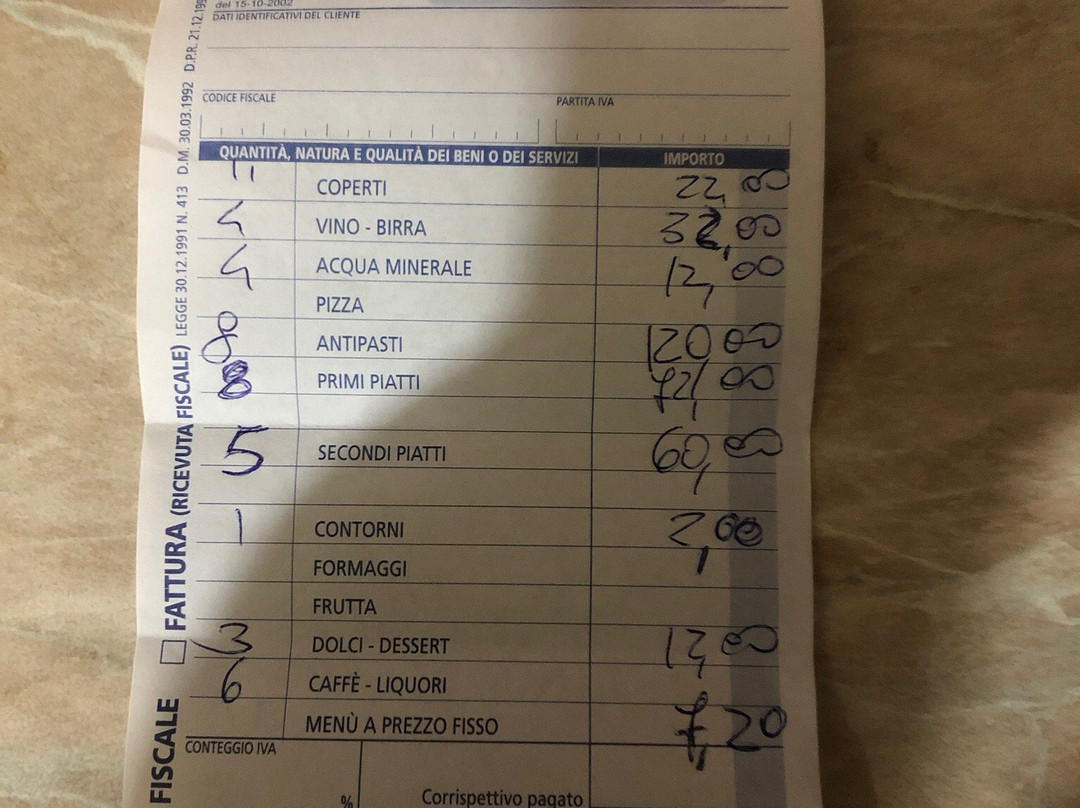 del 15-10-2002
DATI IDENTIFICATIVI DEL CLIENTE
CODICE FISCALE PARTITA IVA
QUANTITÀ, NATURA E QUALITÀ DEI BENI O DEI SERVIZI IMPORTO
11 COPERTI 22,00
4 VINO - BIRRA 32,00
4 ACQUA MINERALE 12,00
PIZZA
8 ANTIPASTI 120,00
8 PRIMI PIATTI 72,00
5 SECONDI PIATTI 60,00
1 CONTORNI 2,00
FORMAGGI
FRUTTA
3 DOLCI - DESSERT 12,00
6 CAFFÈ - LIQUORI
MENÙ A PREZZO FISSO 7,20
CONTEGGIO IVA
% Corrispettivo pagato
FISCALE FATTURA (RICEVUTA FISCALE) LEGGE 30.12.1991 N. 413 D.M. 30.03.1992 D.P.R. 21.12.199